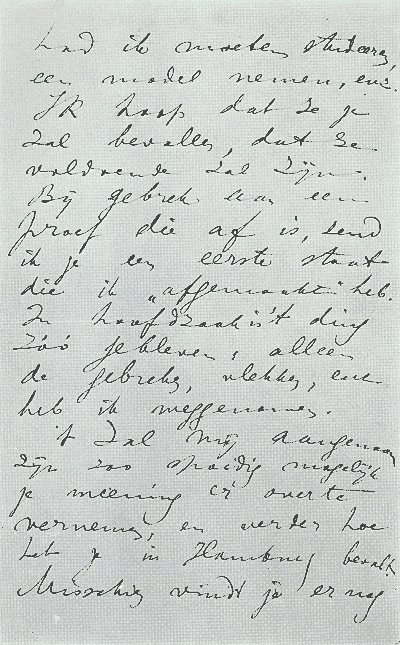 had ik moeten studeeren,
een model nemen, enz.
Ik hoop dat ze je
zal bevallen, dat ze
voldoende zal zijn.
Bij gebrek aan een
proef die af is, zend
ik je een eerste staat
die ik „afgemaakt" heb.
In hoofdzaak is 't ding
zóó gebleven; alleen
de gebreken, vlekken, enz.
heb ik weggenomen.
't Zal mij aangenaam
zijn zoo spoedig mogelijk
je meening er over te
vernemen, en verder hoe
het je in Hamburg bevalt.
Misschien vindt je er nog